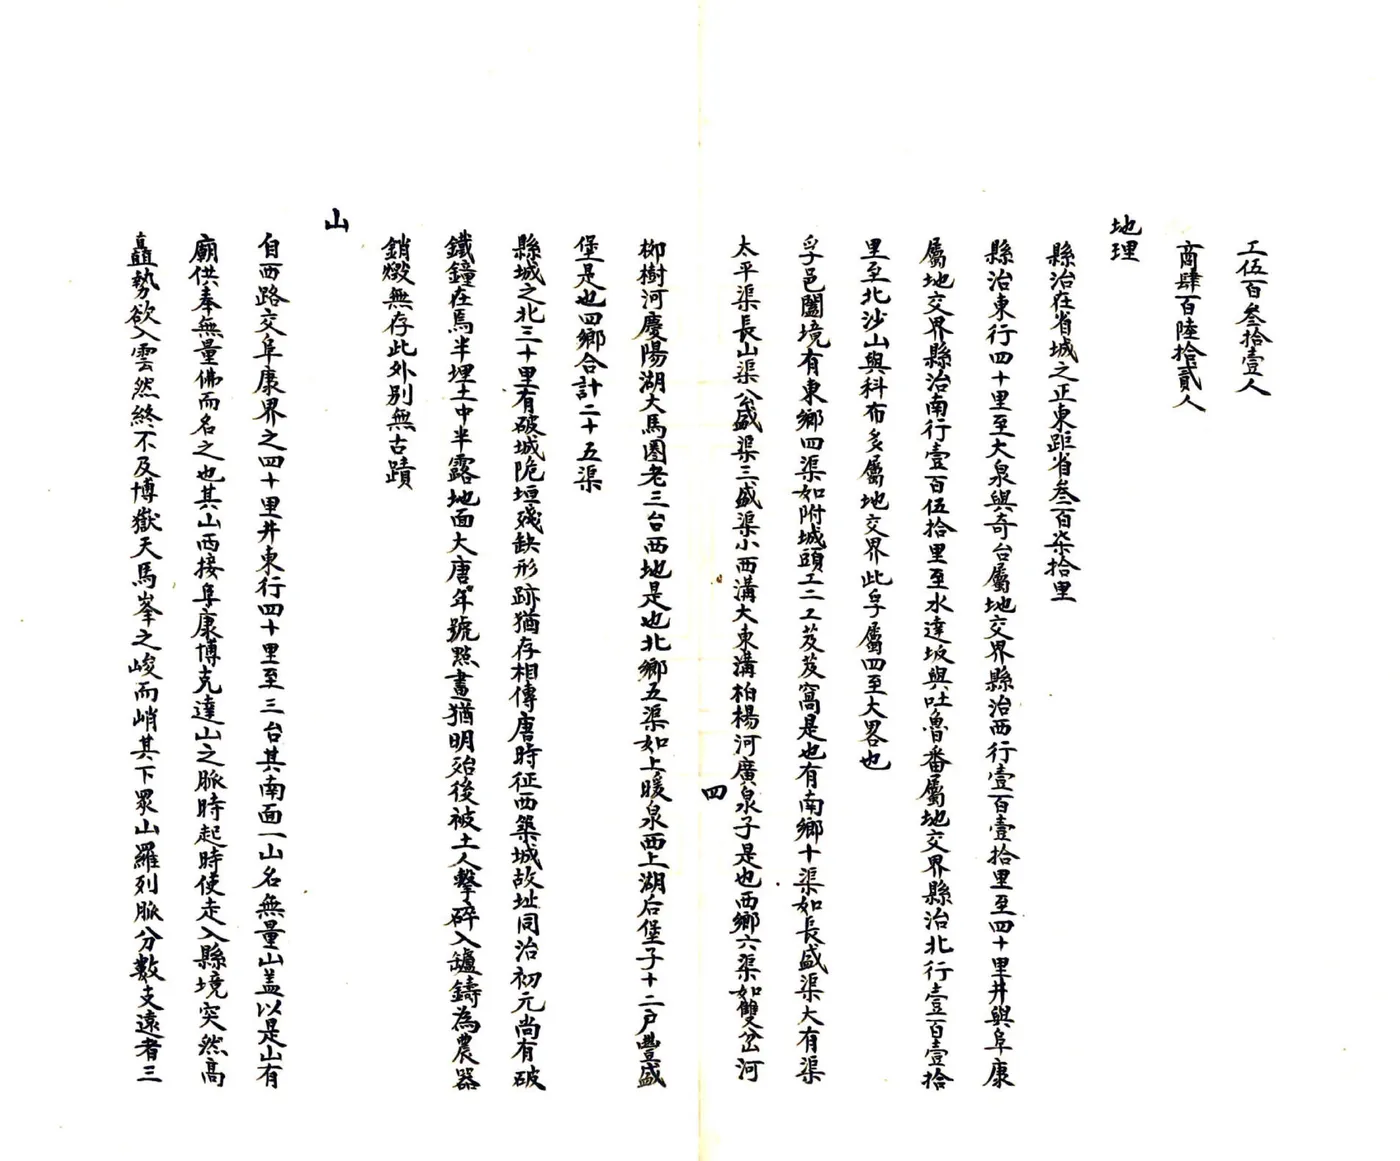 工伍百叁拾壹人
商肆百陸拾貳人
地理
縣治在省城之正東距省叁百柒拾里
縣治東行四十里至大泉與奇台屬地交界縣治西行壹百壹拾里至四十里井與阜康
屬地交界縣治南行壹百伍拾里至水達坂與吐魯番屬地交界縣治北行壹百壹拾
里至北沙山與科布多屬地交界此孚屬四至大畧也
孚邑闔境有東鄉四渠如附城頭工二工芨芨窩是也有南鄉十渠如長盛渠大有渠
太平渠長山渠公盛渠三盛渠小西溝大東溝柏楊河廣泉子是也西鄉六渠如雙岔河
四
柳樹河慶陽湖大馬圈老三台西地是也北鄉五渠如上暖泉西上湖后堡子十二户豐盛
堡是也四鄉合計二十五渠
縣城之北三十里有破城陁垣殘缺形跡猶存相傳唐時征西築城故址同治初元尚有破
鐵鐘在焉半埋土中半露地面大唐年號㸃畫猶明殆後被土人擊碎入罏鑄為農器
銷燬無存此外別無古蹟
山
自西路交阜康界之四十里井東行四十里至三台其南面一山名無量山盖以是山有
廟供奉無量佛而名之也其山西接阜康博克達山之脈時起時使走入縣境突然高
矗勢欲入雲然終不及博嶽天馬峯之峻而峭其下眾山羅列脈分數支遠者三